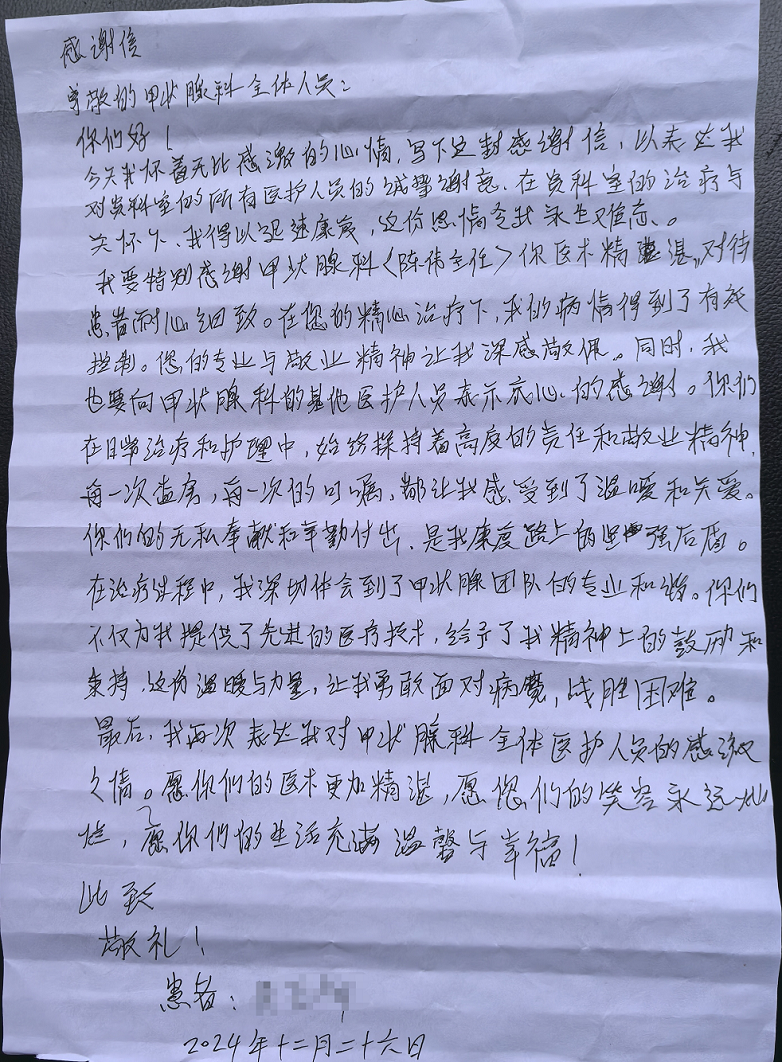 感谢信
尊敬的甲状腺科全体人员：
你们好！
今天我怀着无比感激的心情，写下这封感谢信，以表达我
对贵科室的所有医护人员的诚挚谢意。在贵科室的治疗与
关怀下、我得以迅速康复，这份恩情令我永生难忘。
我要特别感谢甲状腺科〈陈伟主任〉你医术精湛，对待
患者耐心细致。在您的精心治疗下，我的病情得到了有效
控制。您的专业与敬业精神让我深感敬佩。同时，我
也要向甲状腺科的其他医护人员表示衷心的感谢。你们
在日常治疗和护理中，始终保持着高度的责任和敬业精神，
每一次查房，每一次的叮嘱，都让我感受到了温暖和关爱。
你们的无私奉献和辛勤付出、是我康复路上的坚强后盾。
在治疗过程中，我深切体会到了甲状腺团队的专业和谐。你们
不仅为我提供了先进的医疗技术，给予了我精神上的鼓励和
支持，这份温暖与力量，让我勇敢面对病魔，战胜困难。
最后，我再次表达我对甲状腺科全体医护人员的感激
之情。愿你们的医术更加精湛，愿您们的笑容永远灿
烂，愿你们的生活充满温馨与幸福！
此致
敬礼！
患者：
2024年十二月二十六日